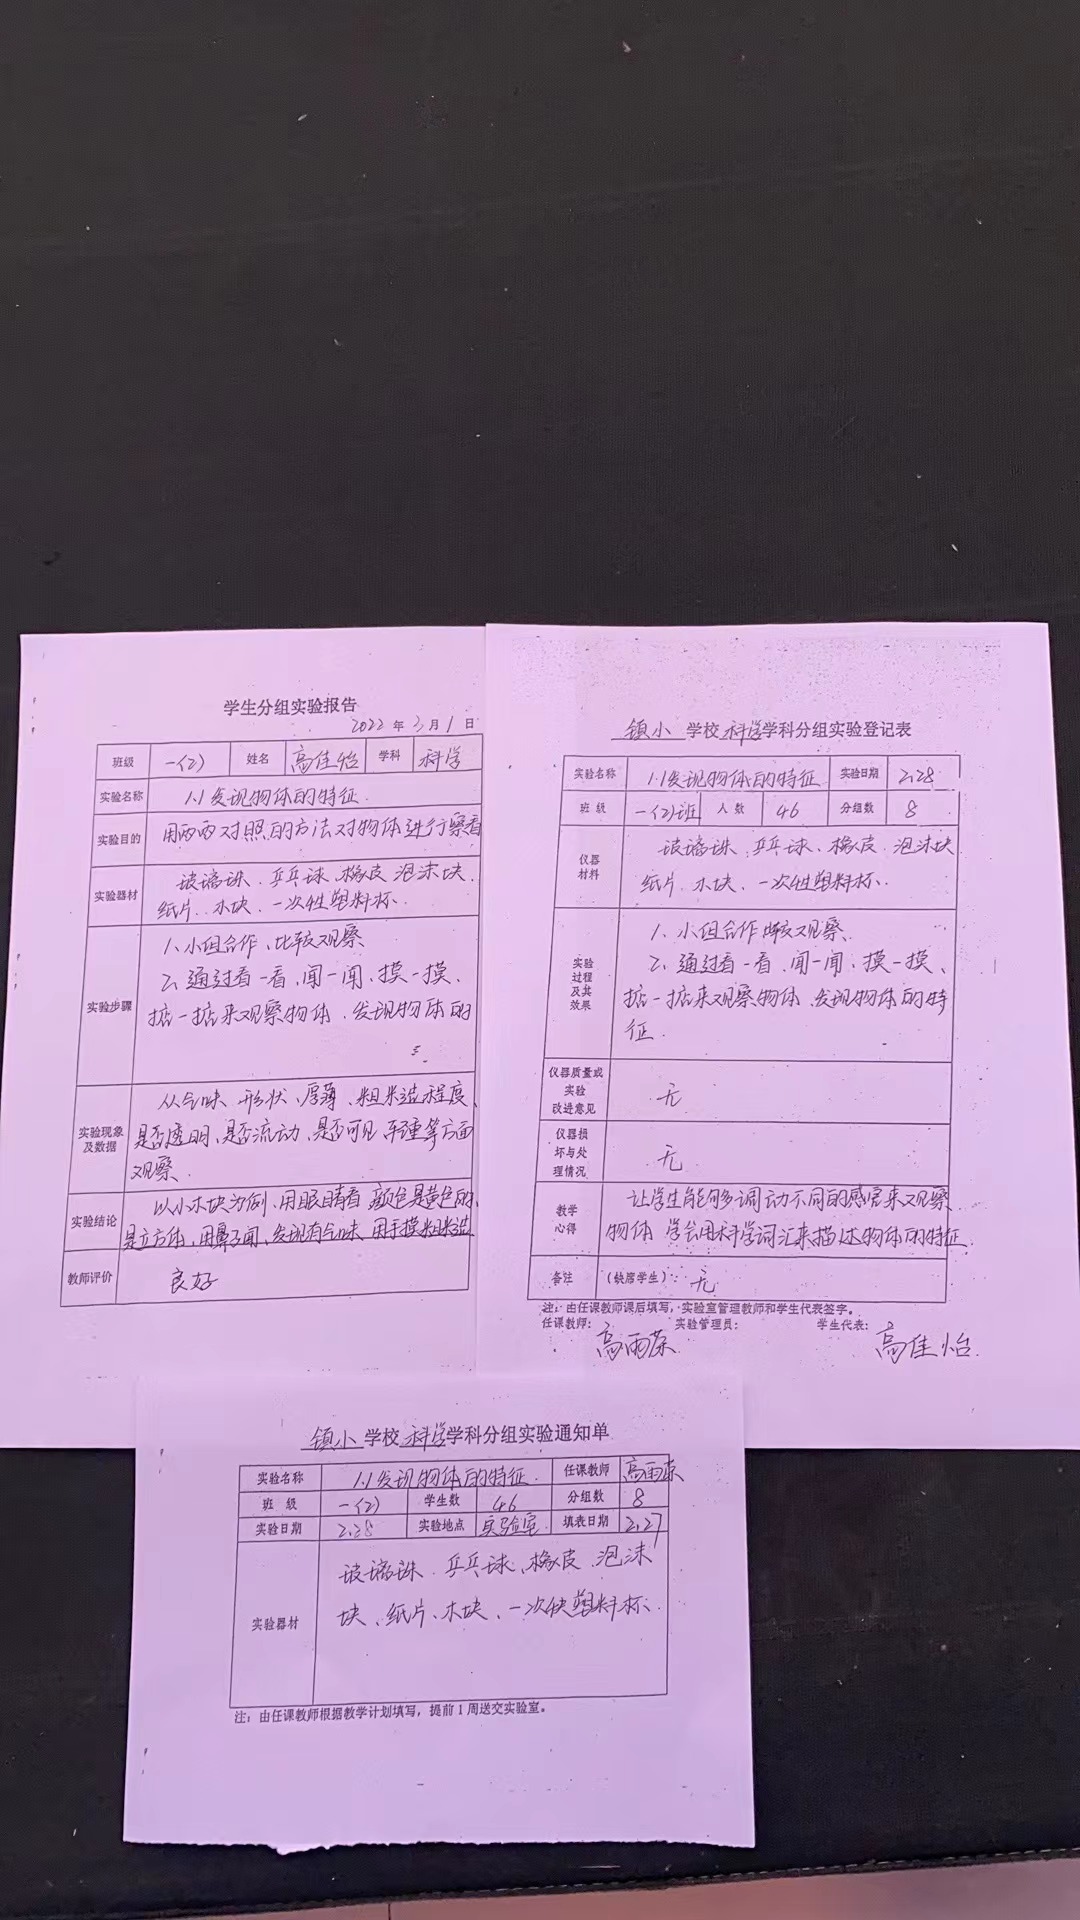 学生分组实验报告
2022 年 3 月 1 日
班级 一(2) 姓名 高佳怡 学科 科学
实验名称 1.1发现物体的特征
实验目的 用两两对照的方法对物体进行察看
实验器材 玻璃珠、乒乓球、橡皮 泡沫块、
纸片、木块、一次性塑料杯.
实验步骤
1、小组合作、比较观察
2、通过看一看、闻一闻、摸一摸、
掂一掂来观察物体、发现物体的
实验现象
及数据
从气味、形状、厚薄、粗糙程度、
是否透明、是否流动、是否可见 轻重等方面
观察.
实验结论
以小木块为例、用眼睛看 颜色是黄色的、
是立方体、用鼻子闻、发现有气味 用手摸粗糙
教师评价 良好
镇小 学校 科学学科分组实验登记表
实验名称 1.1发现物体的特征 实验日期 2.28
班 级 一(2)班 人 数 46 分组数 8
仪器
材料
玻璃珠、乒乓球、橡皮、泡沫块
纸片、木块、一次性塑料杯.
实验
过程
及其
效果
1、小组合作 比较观察、
2、通过看一看、闻一闻、摸一摸、
掂一掂来观察物体、发现物体的特
征.
仪器质量或
实验
改进意见
无
仪器损
坏与处
理情况
无
教学
心得
让学生能够多调动不同的感官来观察
物体 学会用科学词汇来描述物体的特征.
备注 (缺席学生): 无
注: 由任课教师课后填写,实验室管理教师和学生代表签字。
任课教师: 高雨荣 实验管理员: 学生代表: 高佳怡.
镇小 学校 科学学科分组实验通知单
实验名称 1.1发现物体的特征. 任课教师 高雨荣
班 级 一(2) 学生数 46 分组数 8
实验日期 2.28 实验地点 实验室 填表日期 2.27
实验器材
玻璃珠、乒乓球、橡皮、泡沫
块、纸片、木块、一次性塑料杯.
注: 由任课教师根据教学计划填写,提前1周送交实验室。